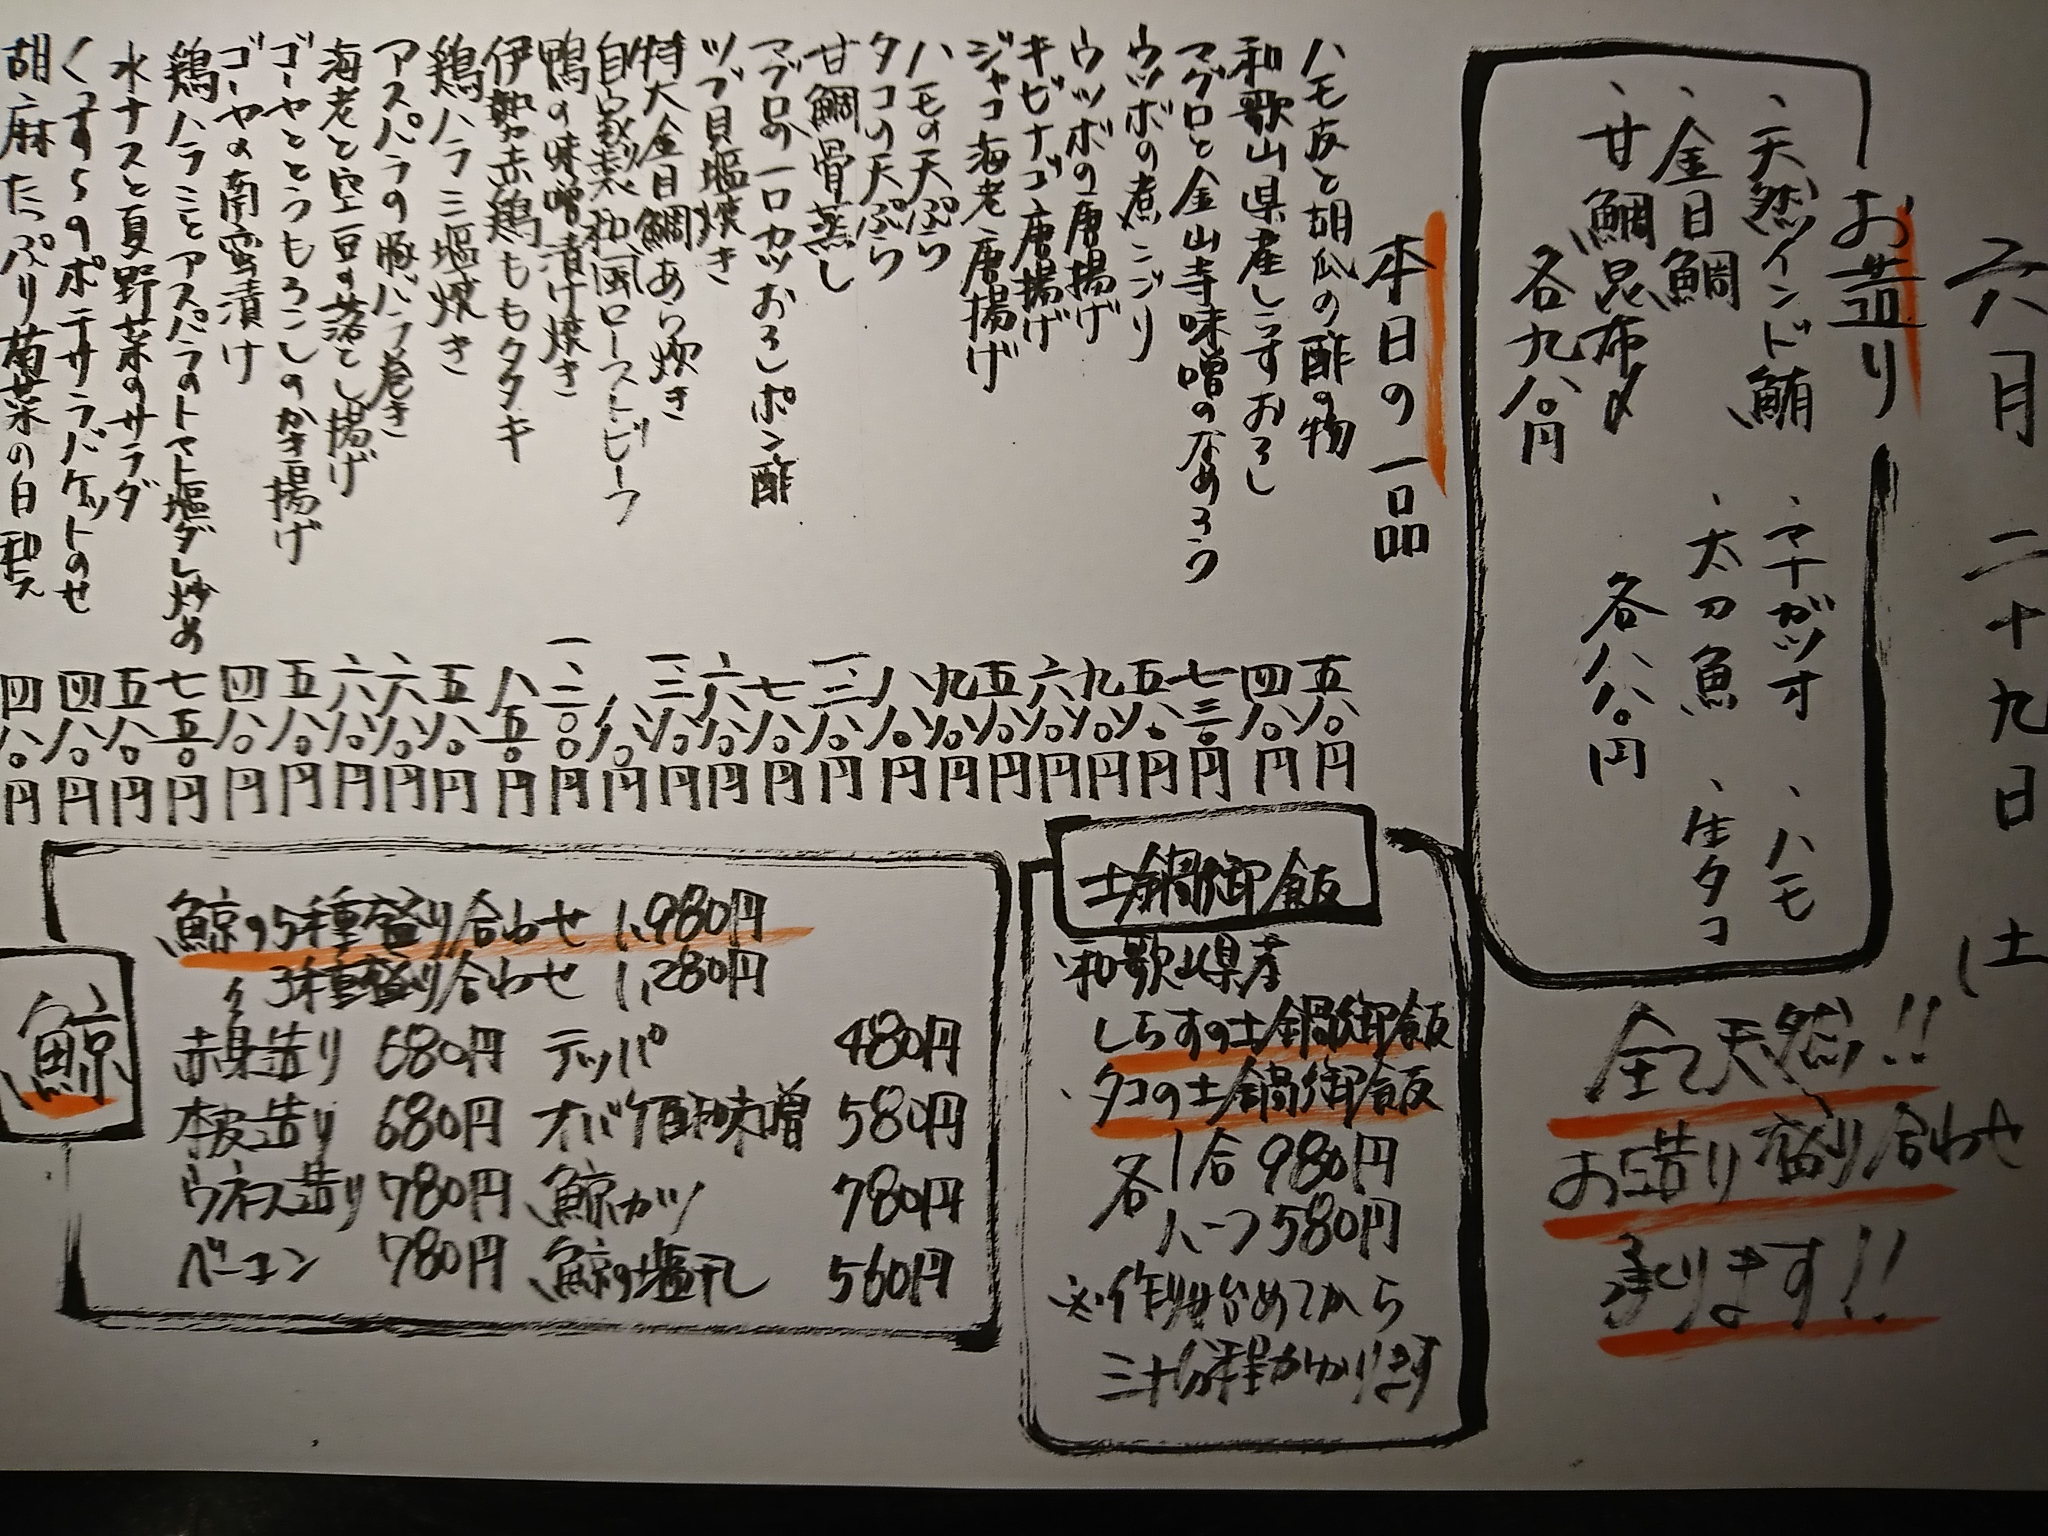 六月二十九日(土
お造り
、天然インド鮪 、マナガツオ 、ハモ
、金目鯛 、太刀魚 、生タコ
、甘鯛昆布〆
各九八〇円 各八八〇円
全て天然!!
お造り盛り合わせ
承ります!!
本日の一品
ハモ皮と胡瓜の酢の物 五八〇円
和歌山県産しらすおろし 四八〇円
マグロと金山寺味噌のなめろう 七三〇円
ウツボの煮こごり 五八〇円
ウツボの唐揚げ 九八〇円
キビナゴ唐揚げ 六八〇円
ジャコ海老唐揚げ 五八〇円
ハモの天ぷら 九八〇円
タコの天ぷら 八八〇円
甘鯛骨蒸し 一、三八〇円
マグロの一口カツおろしポン酢 七八〇円
ツブ貝塩焼き 六八〇円
特大金目鯛あら炊き 一、三八〇円
自家製和風ローストビーフ 八八〇円
鴨の味噌漬け焼き 一、二〇〇円
伊勢赤鶏ももタタキ 八五〇円
鶏ハラミ塩焼き 五八〇円
アスパラの豚バラ巻き 六八〇円
海老と空豆の落とし揚げ 六八〇円
ゴーヤととうもろこしのかき揚げ 五八〇円
ゴーヤの南蛮漬け 四八〇円
鶏ハラミとアスパラのトマト塩ダレ炒め 七五〇円
水ナスと夏野菜のサラダ 五八〇円
くずし豆のポテサラバケットのせ 四八〇円
胡麻たっぷり菊菜の白和え 四八〇円
土鍋御飯
、和歌山県産
しらすの土鍋御飯
、タコの土鍋御飯
各 1合 980円
ハーフ 580円
※作り始めてから
三十分程かかります
鯨
鯨の5種盛り合わせ 1,980円
〃 3種盛り合わせ 1,280円
赤身造り 680円 テッパ 480円
本皮造り 680円 オバケ酢味噌 580円
ウネス造り 780円 鯨カツ 780円
ベーコン 780円 鯨の塩干し 560円